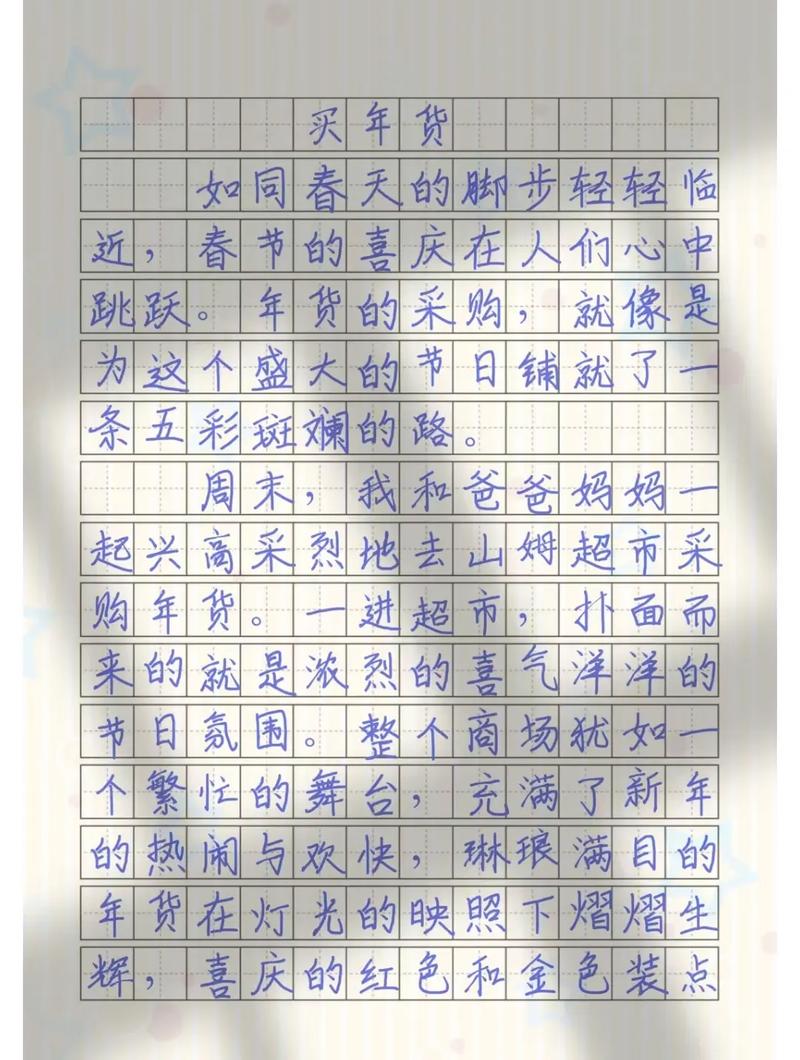 买年货
如同春天的脚步轻轻临
近，春节的喜庆在人们心中
跳跃。年货的采购，就像是
为这个盛大的节日铺就了一
条五彩斑斓的路。
周末，我和爸爸妈妈一
起兴高采烈地去山姆超市采
购年货。一进超市，扑面而
来的就是浓烈的喜气洋洋的
节日氛围。整个商场犹如一
个繁忙的舞台，充满了新年
的热闹与欢快，琳琅满目的
年货在灯光的映照下熠熠生
辉，喜庆的红色和金色装点